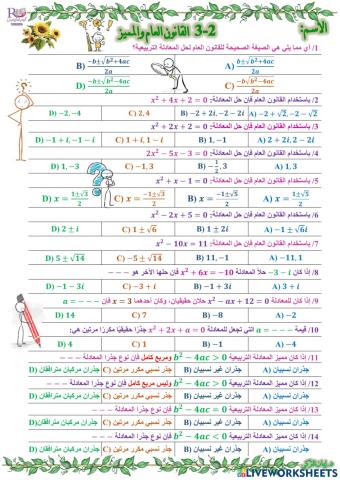 الأسم:
3-2 القانون العام والمميز
1/ أي مما يلي هي الصيغة الصحيحة للقانون العام لحل المعادلة التربيعية؟
A) (b±√(b²+4ac))/2a B) (-b±√(b²+4ac))/2a
C) (b±√(b²-4ac))/2a D) (-b±√(b²-4ac))/2a
2/ باستخدام القانون العام فإن حل المعادلة: x² + 4x + 2 = 0
A) -2 + √2, -2 - √2 B) -2 + 2i, -2 - 2i C) 2, 4 D) -2, -4
3/ باستخدام القانون العام فإن حل المعادلة: x² + 2x + 2 = 0
A) 2 + 2i, 2 - 2i B) 1, -1 C) 1 + i, 1 - i D) -1 + i, -1 - i
4/ باستخدام القانون العام فإن حل المعادلة: 2x² - 5x - 3 = 0
A) 1, 3 B) -1/2, 3 C) -1, 3 D) 1, -3
5/ باستخدام القانون العام فإن حل المعادلة: x² + x - 1 = 0
6/ باستخدام القانون العام فإن حل المعادلة: x² - 2x + 5 = 0
A) -1 ± √6i B) 1 ± 2i C) 1 ± √6 D) 2 ± i
7/ باستخدام القانون العام فإن حل المعادلة: x² - 10x = 11
A) -11, -1 B) 11, -1 C) -5 ± √14 D) 5 ± √14
8/ إذا كان -3 - i حلاً المعادلة x² + 6x = -10 فإن حلها الآخر هو - - -
A) 3 + i B) -1 + 3i C) -3 + i D) -1 - 3i
9/ إذا كان للمعادلة x² - ax + 12 = 0 حلان حقيقيان، وكان احدهما x = 3 فإن a = - - -
A) -4 B) -8 C) 7 D) 14
10/ قيمة - - - - a = التي تجعل للمعادلة x² + 2x + a = 0 جذرًا حقيقيًا مكررا مرتين هي:
A) -2 B) -1 C) 1 D) 4
11/ إذا كان مميز المعادلة التربيعية b² - 4ac > 0 ومربع كامل فإن نوع جذرا المعادلة - - -
A) جذران نسبيان B) جذران غير نسبيان C) جذر نسبي مكرر مرتين D) جذران مركبان مترافقان
12/ إذا كان مميز المعادلة التربيعية b² - 4ac > 0 وليس مربع كامل فإن نوع جذرا المعادلة - - -
A) جذران نسبيان B) جذران غير نسبيان C) جذر نسبي مكرر مرتين D) جذران مركبان مترافقان
13/ إذا كان مميز المعادلة التربيعية b² - 4ac = 0 فإن نوع جذرا المعادلة - - -
A) جذران نسبيان B) جذران غير نسبيان C) جذر نسبي مكرر مرتين D) جذران مركبان مترافقان
14/ إذا كان مميز المعادلة التربيعية b² - 4ac < 0 فإن نوع جذرا المعادلة - - -
A) جذران نسبيان B) جذران غير نسبيان C) جذر نسبي مكرر مرتين D) جذران مركبان مترافقان
LIVEWORKSHEETS